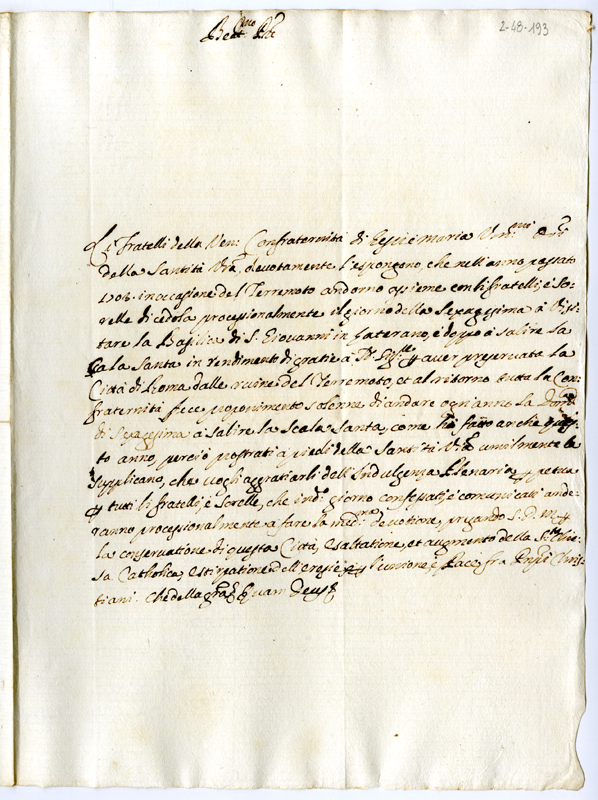 2-48-193
Beat.mo P̃re
Li fratelli della Ven: Confraternità di Giesù e Maria
della Santità Vrã, devotamente l'espongono, che nell'anno passato
in occasione del Terremoto andorno assieme con li fratelli, e So-
relle di cedola processionalmente il giorno della Sexagesima à Visi-
tare la Basilica di S. Giovanni in Laterano, e doppo à salire la
Scala Santa in rendimento di gratie à aver preservata la
Città di Roma dalle ruine del Terremoto, et al ritorno tutta la Con-
fraternità fece proponimento solenne di andare ogn'anno la
di Sexagesima à salire la Scala Santa, come hà fatto anche ques-
to anno, perciò prostrati à piedi della Santità Vrã umilmente la
supplicano, che vogli aggratiarli dell'Indulgenza Plenaria petua
tutti li fratelli e Sorelle, che ind.o giorno confessati, e comunicati ande-
ranno processionalmente a fare la med.ma devotione, pregando
la conservatione di questa Città, esaltatione, et augmento della S.ta Chie-
sa Catholica, estirpatione dell'eresie, unione, e Pace fra Chris-
tiani. Che della Quam Deus